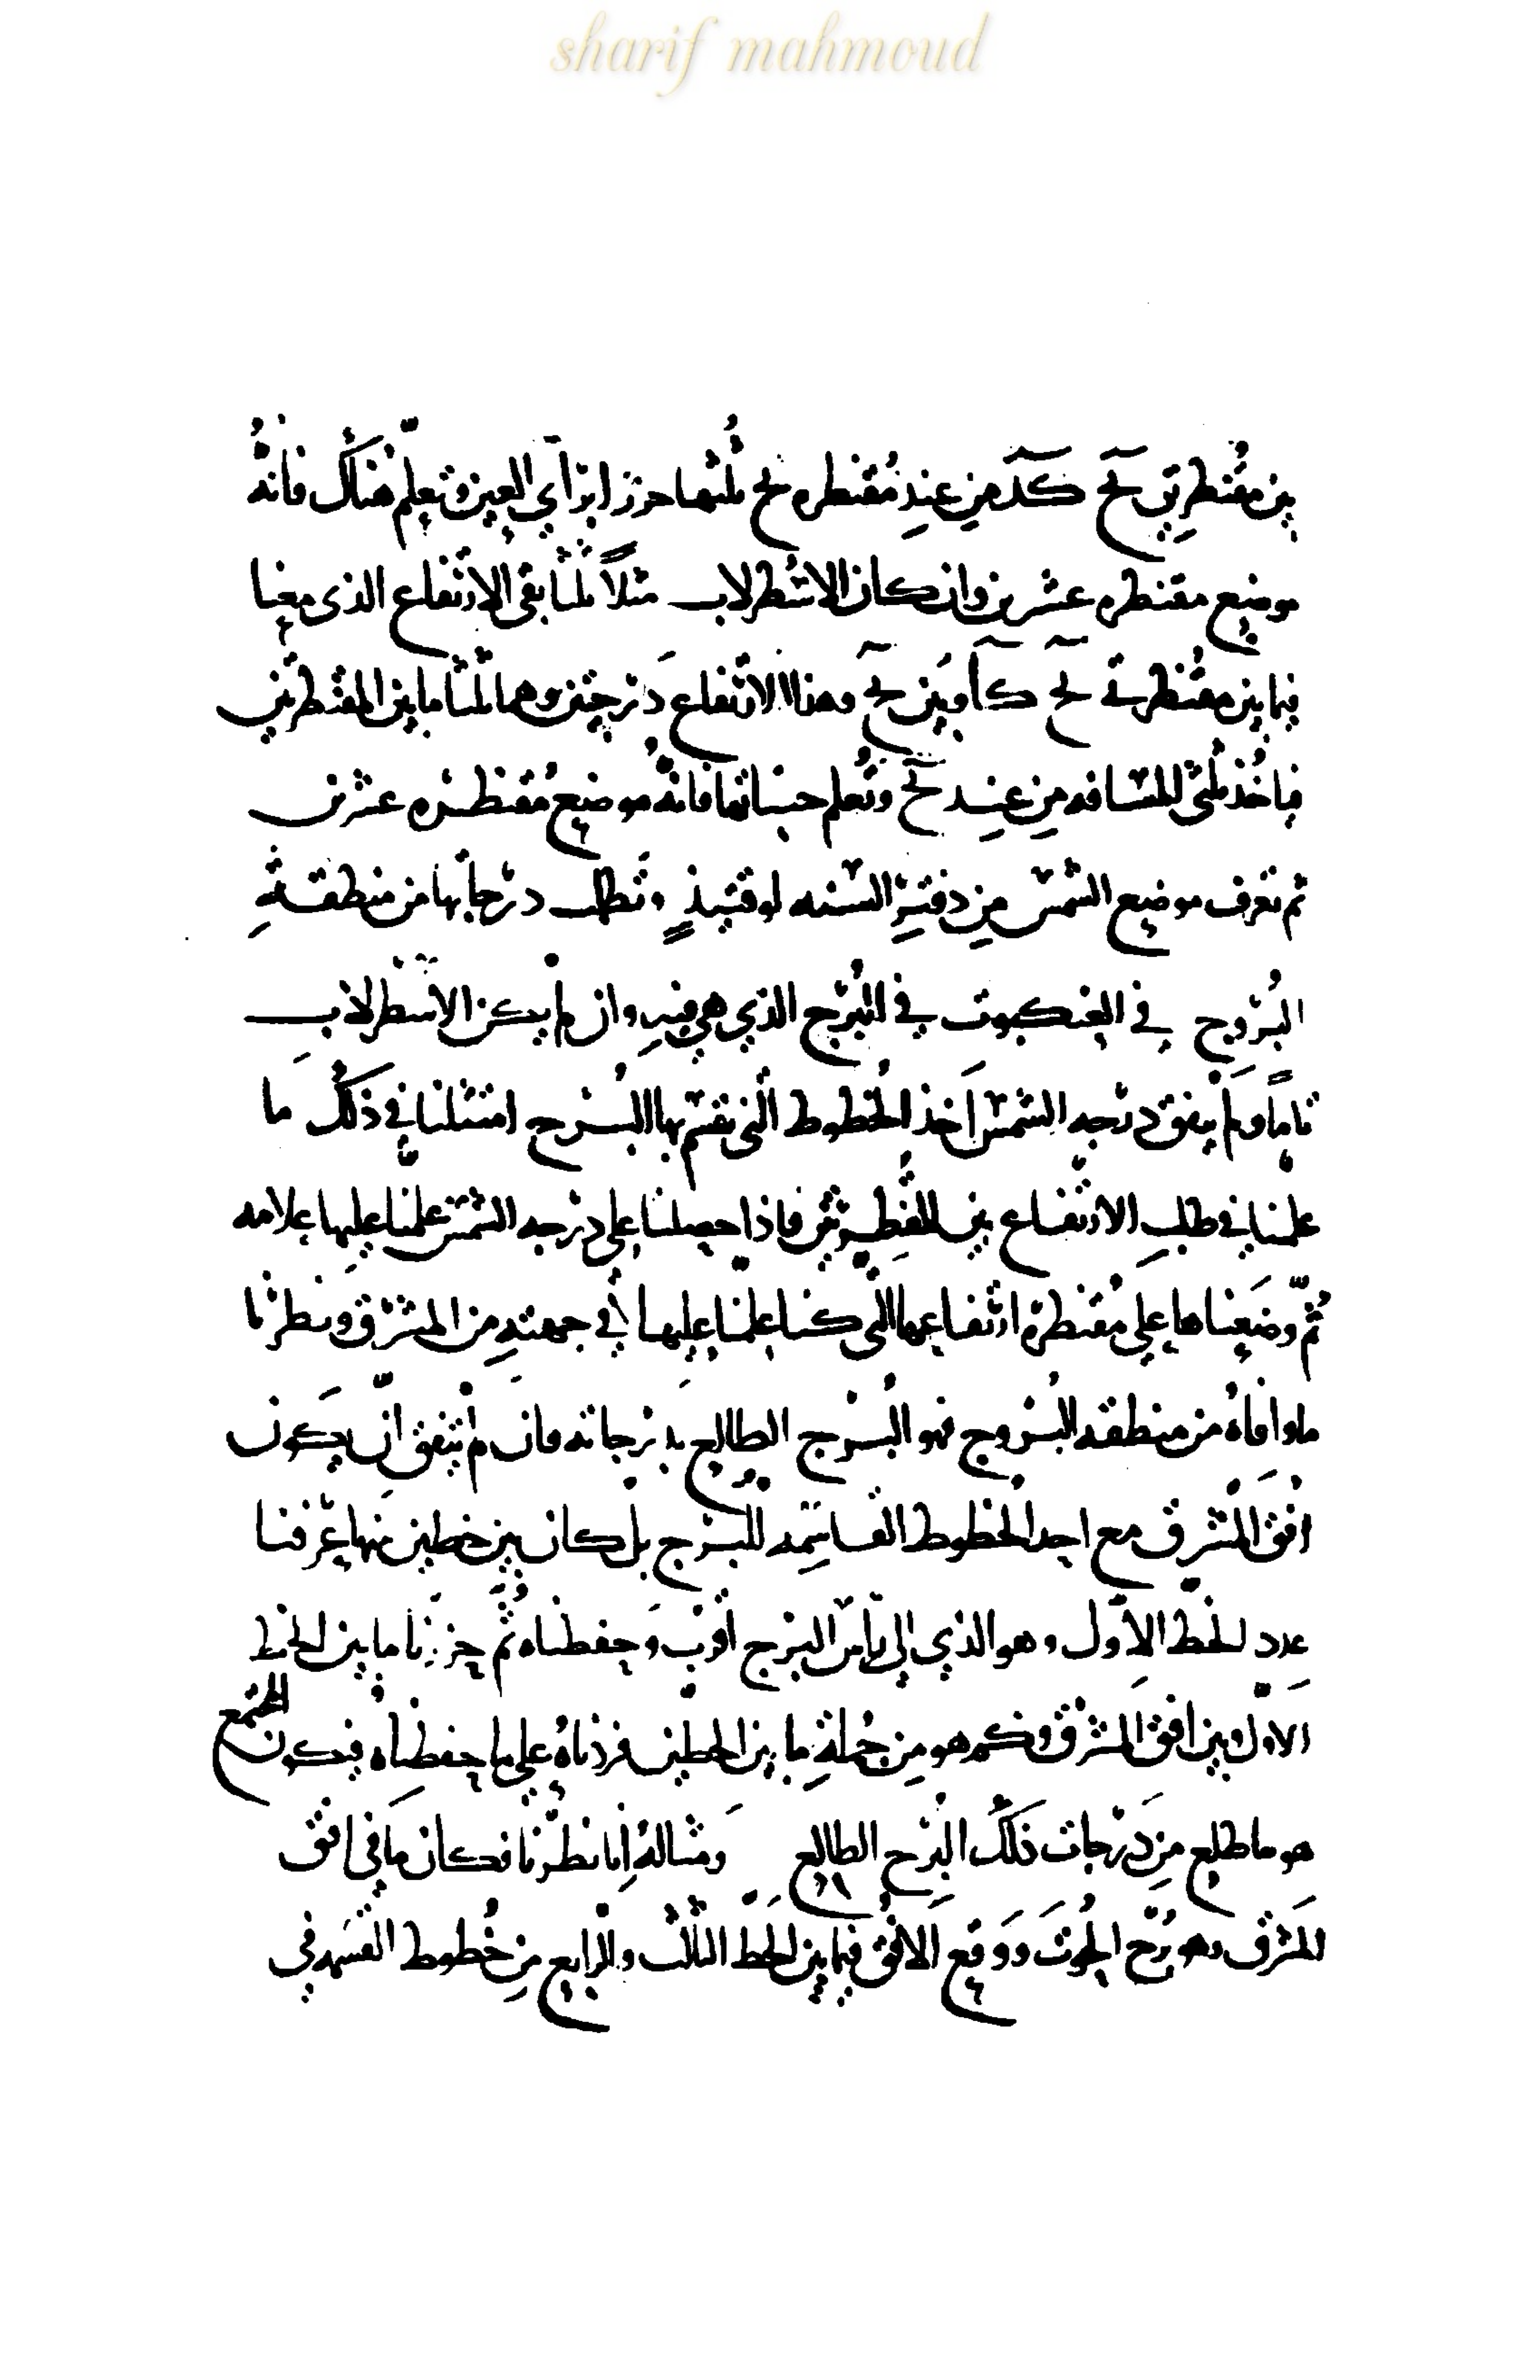 sharif mahmoud
بين مقنطرتي يح كد من عند مقنطره يح ثلثها حزرا برأي العين وتعلم هناك فانهُ
موضع مقنطره عشرين وان كان الاسطرلاب مثلاً ثلثا بقي الارتفاع الذي معنا
فيما بين مقنطرتي يح كا وبين يح وهذا الارتفاع درجتين وهما ثلثا ما بين المقنطرتين
فياخُذ ثلثى المسافه من عند يح وتُعلم حيث انتها فانهُ موضع مُقنطره عشرين
ثم تعرف موضع الشمس من دفتر السنه لوقتيذٍ وتطلب درجاتها من منطقةِ
البُرُوج في العنكبوت في البُرج الذي هي فيهِ وان لم يكن الاسطرلاب
تاماً ولم يتفق درجه الشمس احد الخُطوط التي تقسم بها البُرج امتثلنا في ذلك ما
علمنا في طلب الارتفاع بين المقنطرتين فاذا حصلنا على درجه الشمس علّمنا عليها علامه
ثُمّ وضعناها على مُقنطرة ارتفاعها التي كنا علمنا عليها في جهتهِ من المشرق ونظرنا
ما وافاهُ من منطقه البُروج فهو البُرج الطالع بدرجاته فان لم يتفق ان يكون
افق المشرق مع احد الخطوط القاسمه للبرج بل كان بين خطين منها عرفنا
عدد الخط الاول وهو الذي الي راس البرج اقرب وحفظناه ثُم حزرنا ما بين الخط
الاول وبين افق المشرق وكم هو من جُملةِ ما بين الخطين فزدناهُ على ما حفظناه فيكون المجتمع
هو ما طلع من درجات ذلك البُرج الطالع ومثالهُ انا نظرنا فكان ما في افق
المشرق وهو بُرج الحُوت ووقع الافق فيما بين الخط الثالث والرابع من خُطوط القسمه في